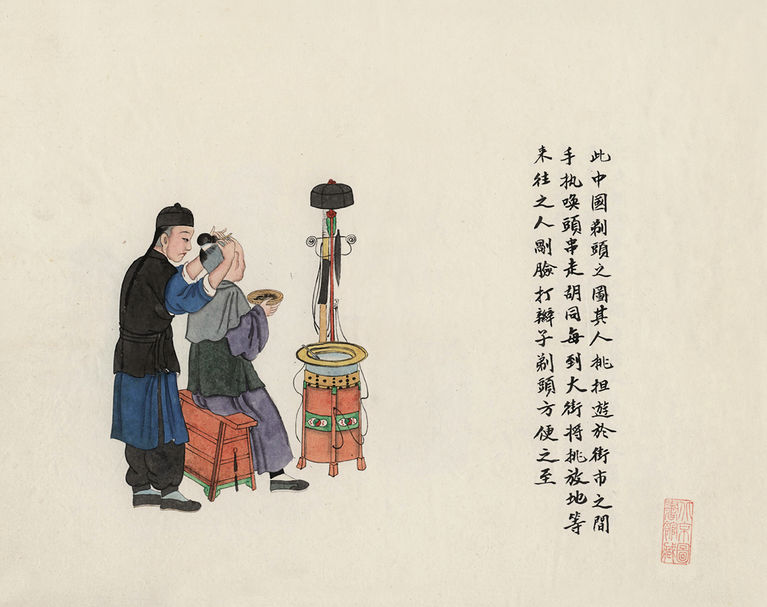 此中國剃頭之圖其人挑担遊於街市之間
手执喚頭串走胡同每到大街将挑放地等
来往之人剮臉打辮子剃頭方便之至
北京圖
書館藏